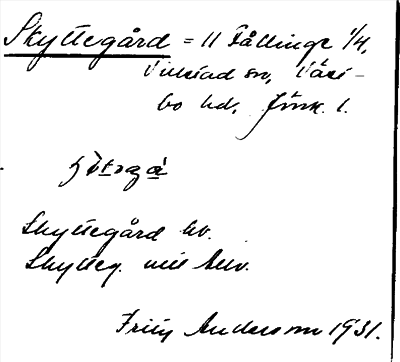 Skyttegård = 11 Fållinge 1/4,
Villstad sn, Väst-
bo hd, Jönk. l.
Skyttegård hv.
Skytteg. mill
Frity Andersson 1931.